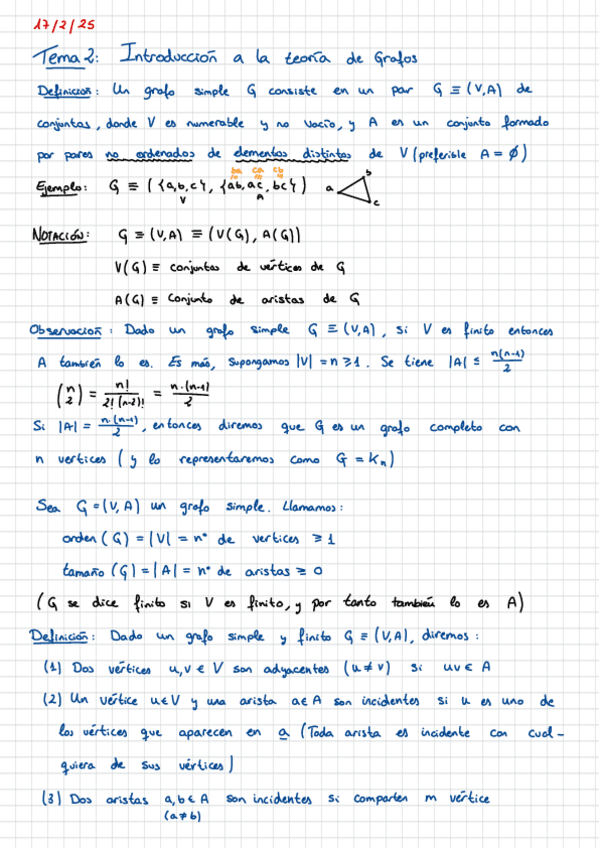 17/2/25
Tema 2: Introducción a la teoría de Grafos
Definición: Un grafo simple G consiste en un par G ≡ (V,A) de
conjuntos, donde V es numerable y no vacío, y A es un conjunto formado
por pares no ordenados de elementos distintos de V (preferible A = ∅)
ba ca cb
Ejemplo: G ≡ ({a,b,c}, {ab,ac,bc}) a b c
V A
NOTACIÓN: G ≡ (V,A) ≡ (V(G), A(G))
V(G) ≡ conjuntos de vértices de G
A(G) ≡ Conjunto de aristas de G
Observación: Dado un grafo simple G ≡ (V,A), si V es finito entonces
A también lo es. Es más, supongamos |V| = n ≥ 1. Se tiene |A| ≤ n(n-1)/2
(n 2) = n!/2!(n-2)! = n·(n-1)/2
Si |A| = n·(n-1)/2, entonces diremos que G es un grafo completo con
n vertices (y lo representaremos como G = Kn)
Sea G = (V,A) un grafo simple. Llamamos:
orden (G) = |V| = nº de vertices ≥ 1
tamaño (G) = |A| = nº de aristas ≥ 0
(G se dice finito si V es finito, y por tanto también lo es A)
Definición: Dado un grafo simple y finito G ≡ (V,A), diremos:
(1) Dos vértices u,v ∈ V son adyacentes (u ≠ v) si uv ∈ A
(2) Un vértice u ∈ V y una arista a ∈ A son incidentes si u es uno de
los vértices que aparecen en a (Toda arista es incidente con cual-
quiera de sus vértices)
(3) Dos aristas a,b ∈ A son incidentes si comparten m vértice
(a ≠ b)